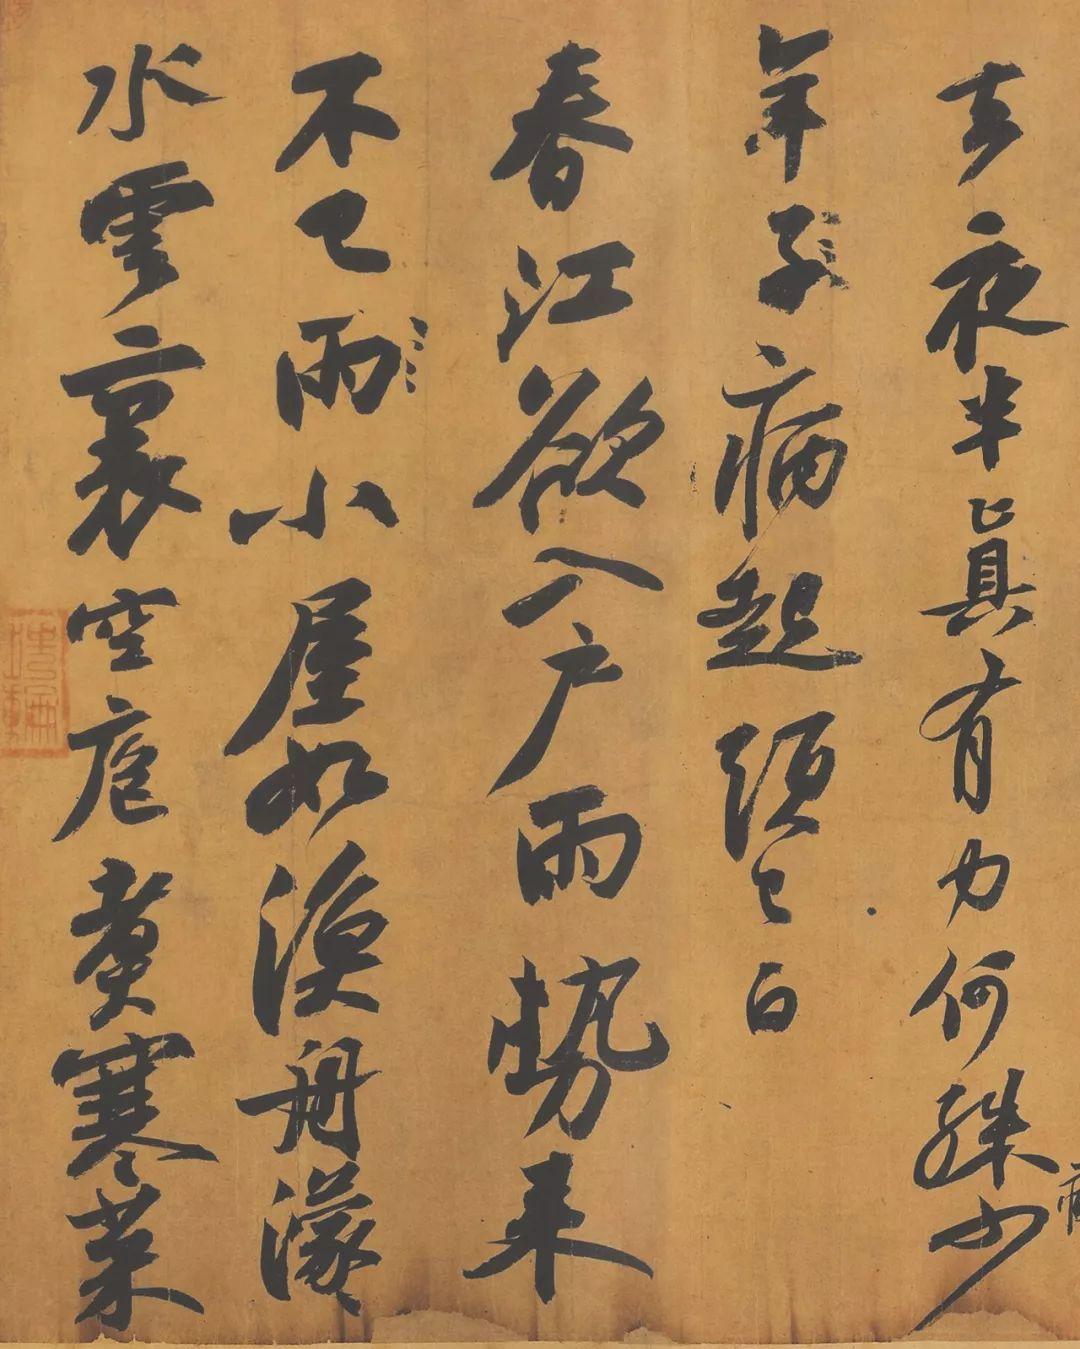 去夜半真有力何殊少
年子病起須已白
春江欲入戶雨勢來
不已雨小屋如漁舟濛〻
水雲裏空庖煮寒菜